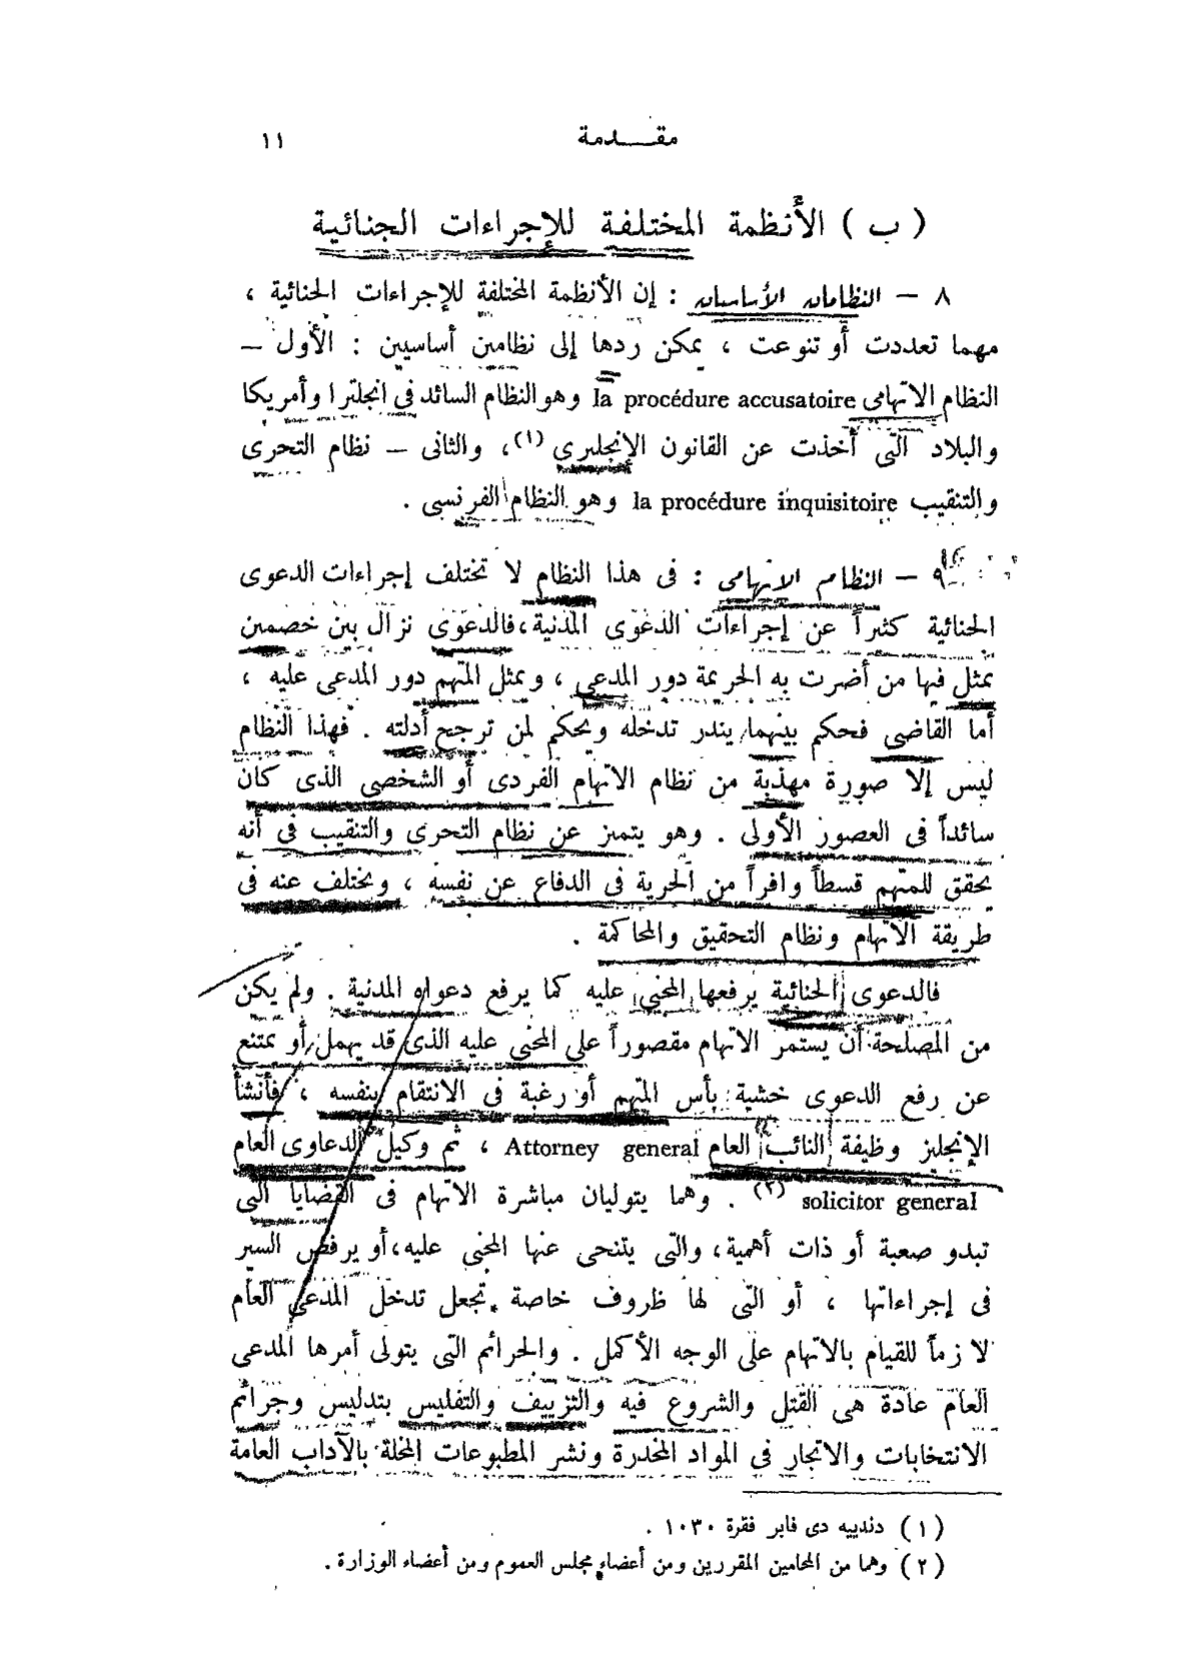 مقدمة ١١
(ب) الأنظمة المختلفة للإجراءات الجنائية
٨ – النظامان الأساسيان : إن الأنظمة المختلفة للإجراءات الجنائية ،
مهما تعددت أو تنوعت ، يمكن ردها إلى نظامين أساسيين : الأول –
النظام الاتهامى la procédure accusatoire وهو النظام السائد فى انجلترا وأمريكا
والبلاد التى أخذت عن القانون الإنجليزى (١)، والثانى – نظام التحرى
والتنقيب la procédure inquisitoire وهو النظام الفرنسى .
٩ – النظام الاتهامى : فى هذا النظام لا تختلف إجراءات الدعوى
الجنائية كثيراً عن إجراءات الدعوى المدنية ، فالدعوى نزال بين خصمين
يمثل فيها من أضرت به الجريمة دور المدعى ، ويمثل المتهم دور المدعى عليه ،
أما القاضى فحكم بينهما يندر تدخله ويحكم لمن ترجح أدلته . فهذا النظام
ليس إلا صورة مهذبة من نظام الاتهام الفردى أو الشخصى الذى كان
سائداً فى العصور الأولى . وهو يتميز عن نظام التحرى والتنقيب فى أنه
يحقق للمتهم قسطاً وافراً من الحرية فى الدفاع عن نفسه ، ويختلف عنه فى
طريقة الاتهام ونظام التحقيق والمحاكمة .
فالدعوى الجنائية يرفعها المجنى عليه كما يرفع دعواه المدنية . ولم يكن
من المصلحة أن يستمر الاتهام مقصوراً على المجنى عليه الذى قد يهمل أو يمتنع
عن رفع الدعوى خشية بأس المتهم أو رغبة فى الانتقام بنفسه ، فأنشأ
الإنجليز وظيفة النائب العام Attorney general ، ثم وكيل الدعاوى العام
solicitor general (٢) . وهما يتوليان مباشرة الاتهام فى القضايا التى
تبدو صعبة أو ذات أهمية ، والتى يتنحى عنها المجنى عليه ، أو يرفض السير
فى إجراءاتها ، أو التى لها ظروف خاصة تجعل تدخل المدعى العام
لازماً للقيام بالاتهام على الوجه الأكمل . والجرائم التى يتولى أمرها المدعى
العام عادة هى القتل والشروع فيه والتزييف والتفليس بتدليس وجرائم
الانتخابات والاتجار فى المواد المخدرة ونشر المطبوعات المخلة بالآداب العامة
(١) دندييه دى فابر فقرة ١٠٣٠ .
(٢) وهما من المحامين المقررين ومن أعضاء مجلس العموم ومن أعضاء الوزارة .